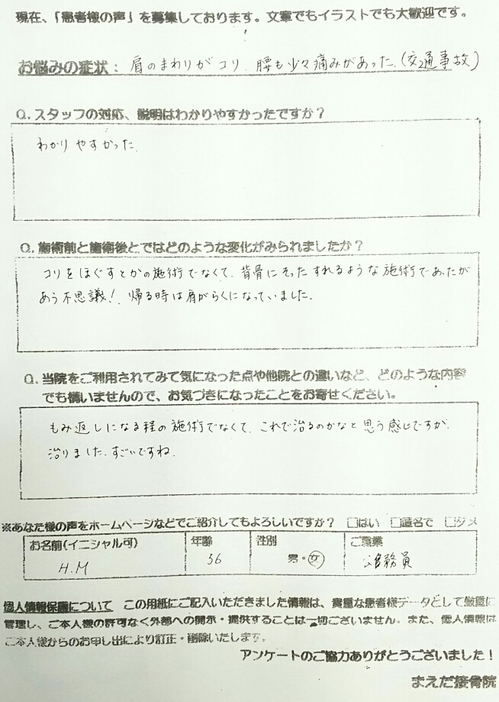 現在、「患者様の声」を募集しております。文章でもイラストでも大歓迎です。
お悩みの症状： 肩のまわりがコリ、腰も少々痛みがあった。(交通事故)
Q.スタッフの対応、説明はわかりやすかったですか？
わかりやすかった。
Q.施術前と施術後とではどのような変化がみられましたか？
コリをほぐすとかの施術でなくて、背骨にそった すれるような施術であったが
あう不思議！ 帰る時は肩がらくになっていました。
Q.当院をご利用されてみて気になった点や他院との違いなど、どのような内容
でも構いませんので、お気づきになったことをお寄せください。
もみ返しになる程の施術でなくて、これで治るのかなと思う感じですが、
治りました。すごいですね。
※あなた様の声をホームページなどでご紹介してもよろしいですか？ □はい □匿名で □ダメ
お名前(イニシャル可) 年齢 性別 ご職業
H.M 36 男・女 公務員
個人情報保護について この用紙にご記入いただきました情報は、貴重な患者様データとして厳重に
管理し、ご本人様の許可なく外部への開示・提供することは一切ございません。また、個人情報は
ご本人様からのお申し出により訂正・削除いたします。
アンケートのご協力ありがとうございました！
まえだ接骨院